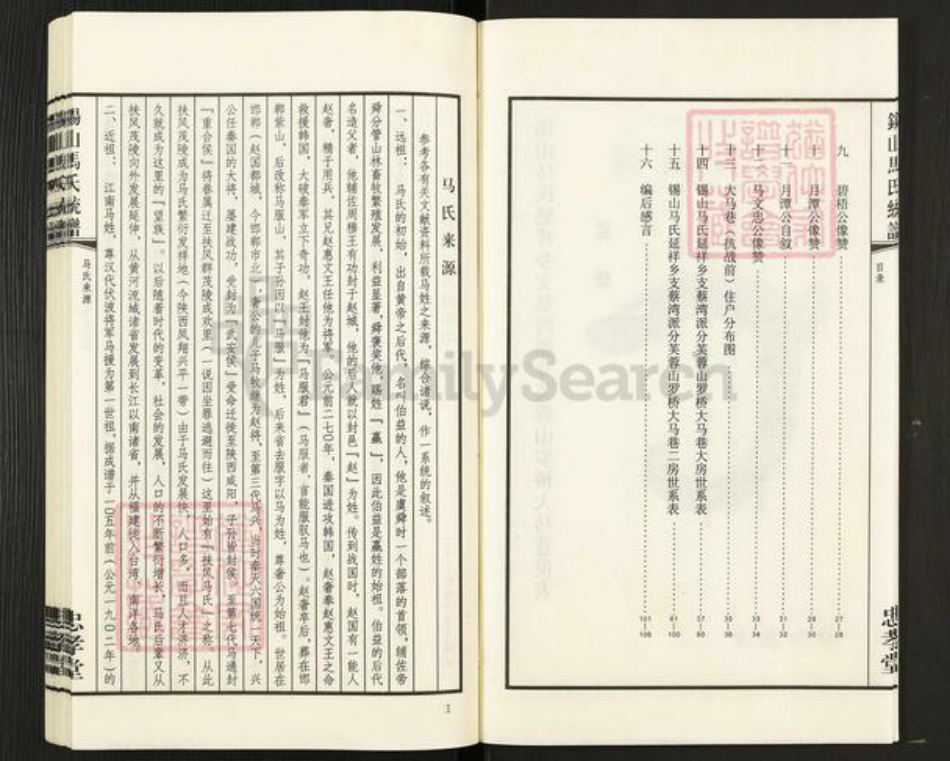 目录
九 碧梧公像赞 27—28
十 月潭公像赞 29—30
十一 月潭公自叙 31—32
十二 马文忠公像赞 33—34
十三 大马巷（抗战前）住户分布图
十四 锡山马氏延祥乡支蔡湾派分芙蓉山罗桥大马巷大房世系表
十五 锡山马氏延祥乡支蔡湾派分芙蓉山罗桥大马巷二房世系表 61—100
十六 编后感言 101—106
忠孝堂
马氏来源
参考各有关文献资料所载马姓之来源，综合诸说，作一系统的叙述。
一、远祖： 马氏的初始，出自黄帝之后代，名叫伯益的人，他是虞舜时一个部落的首领，辅佐帝
舜分管山林畜牧繁殖发展，利益显著，舜褒奖他，赐姓「嬴」，因此伯益是嬴姓的始祖。伯益的后代
名造父者，他辅佐周穆王有功封于赵城，他的后人就以封邑「赵」为姓。传到战国时，赵国有一能人
赵奢，精于用兵，其兄赵惠文王任他为将军。公元前二七〇年，秦国进攻韩国，赵奢奉赵惠文王之命
救援韩国，大破秦军立下奇功，赵王封他为「马服君」（马服者，言能服驭马也）。赵奢卒后，葬在邯
郸紫山，后改称马服山，其子孙因以「马服」为姓，后来省去服字以马为姓，尊奢公为始祖。世居在
邯郸（赵国都城，今邯郸市北），奢公的儿子马牧继为赵将，至第三代马兴，当时秦灭六国统一天下，兴
公任秦国的大将，屡建战功，受封为「武安侯」受命迁徙至陕西咸阳，子孙皆封侯。至第七代马通封
「重合侯」将眷属迁至扶风群茂陵成欢里（一说因坐罪逃避而往）这里始有「扶风马氏」之称。从此
扶风茂陵成为马氏繁衍发祥地（今陕西凤翔兴平一带）由于马氏发展快，人口多，而且人才济济，不
久就成为这里的「望族」。以后随着时代的变革，社会的发展，人口的不断繁衍增长，马氏后辈又从
扶风茂陵向外发展延伸，从黄河流域诸省发展到长江以南诸省，并从福建徙入台湾、南洋各地。
二、近祖： 江南马姓，尊汉代伏波将军马援为第一世祖，据咸谱于一〇五年前（公元一九〇二年）的
马氏来源
忠孝堂
1
FamilySearch